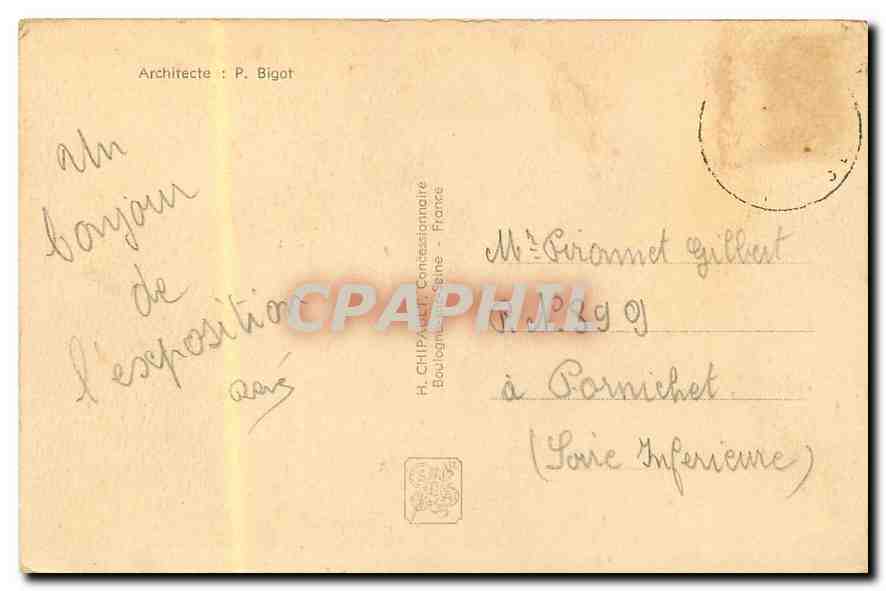 Architecte : P. Bigot
un
bonjour
de
l'exposition
H. CHIPAULT, Concessionnaire
Boulogne-sur-Seine - France
CPAPHIL
Mr Pironnet Gilbert
P. No 899
à Pornichet
(Loire Inferieure)